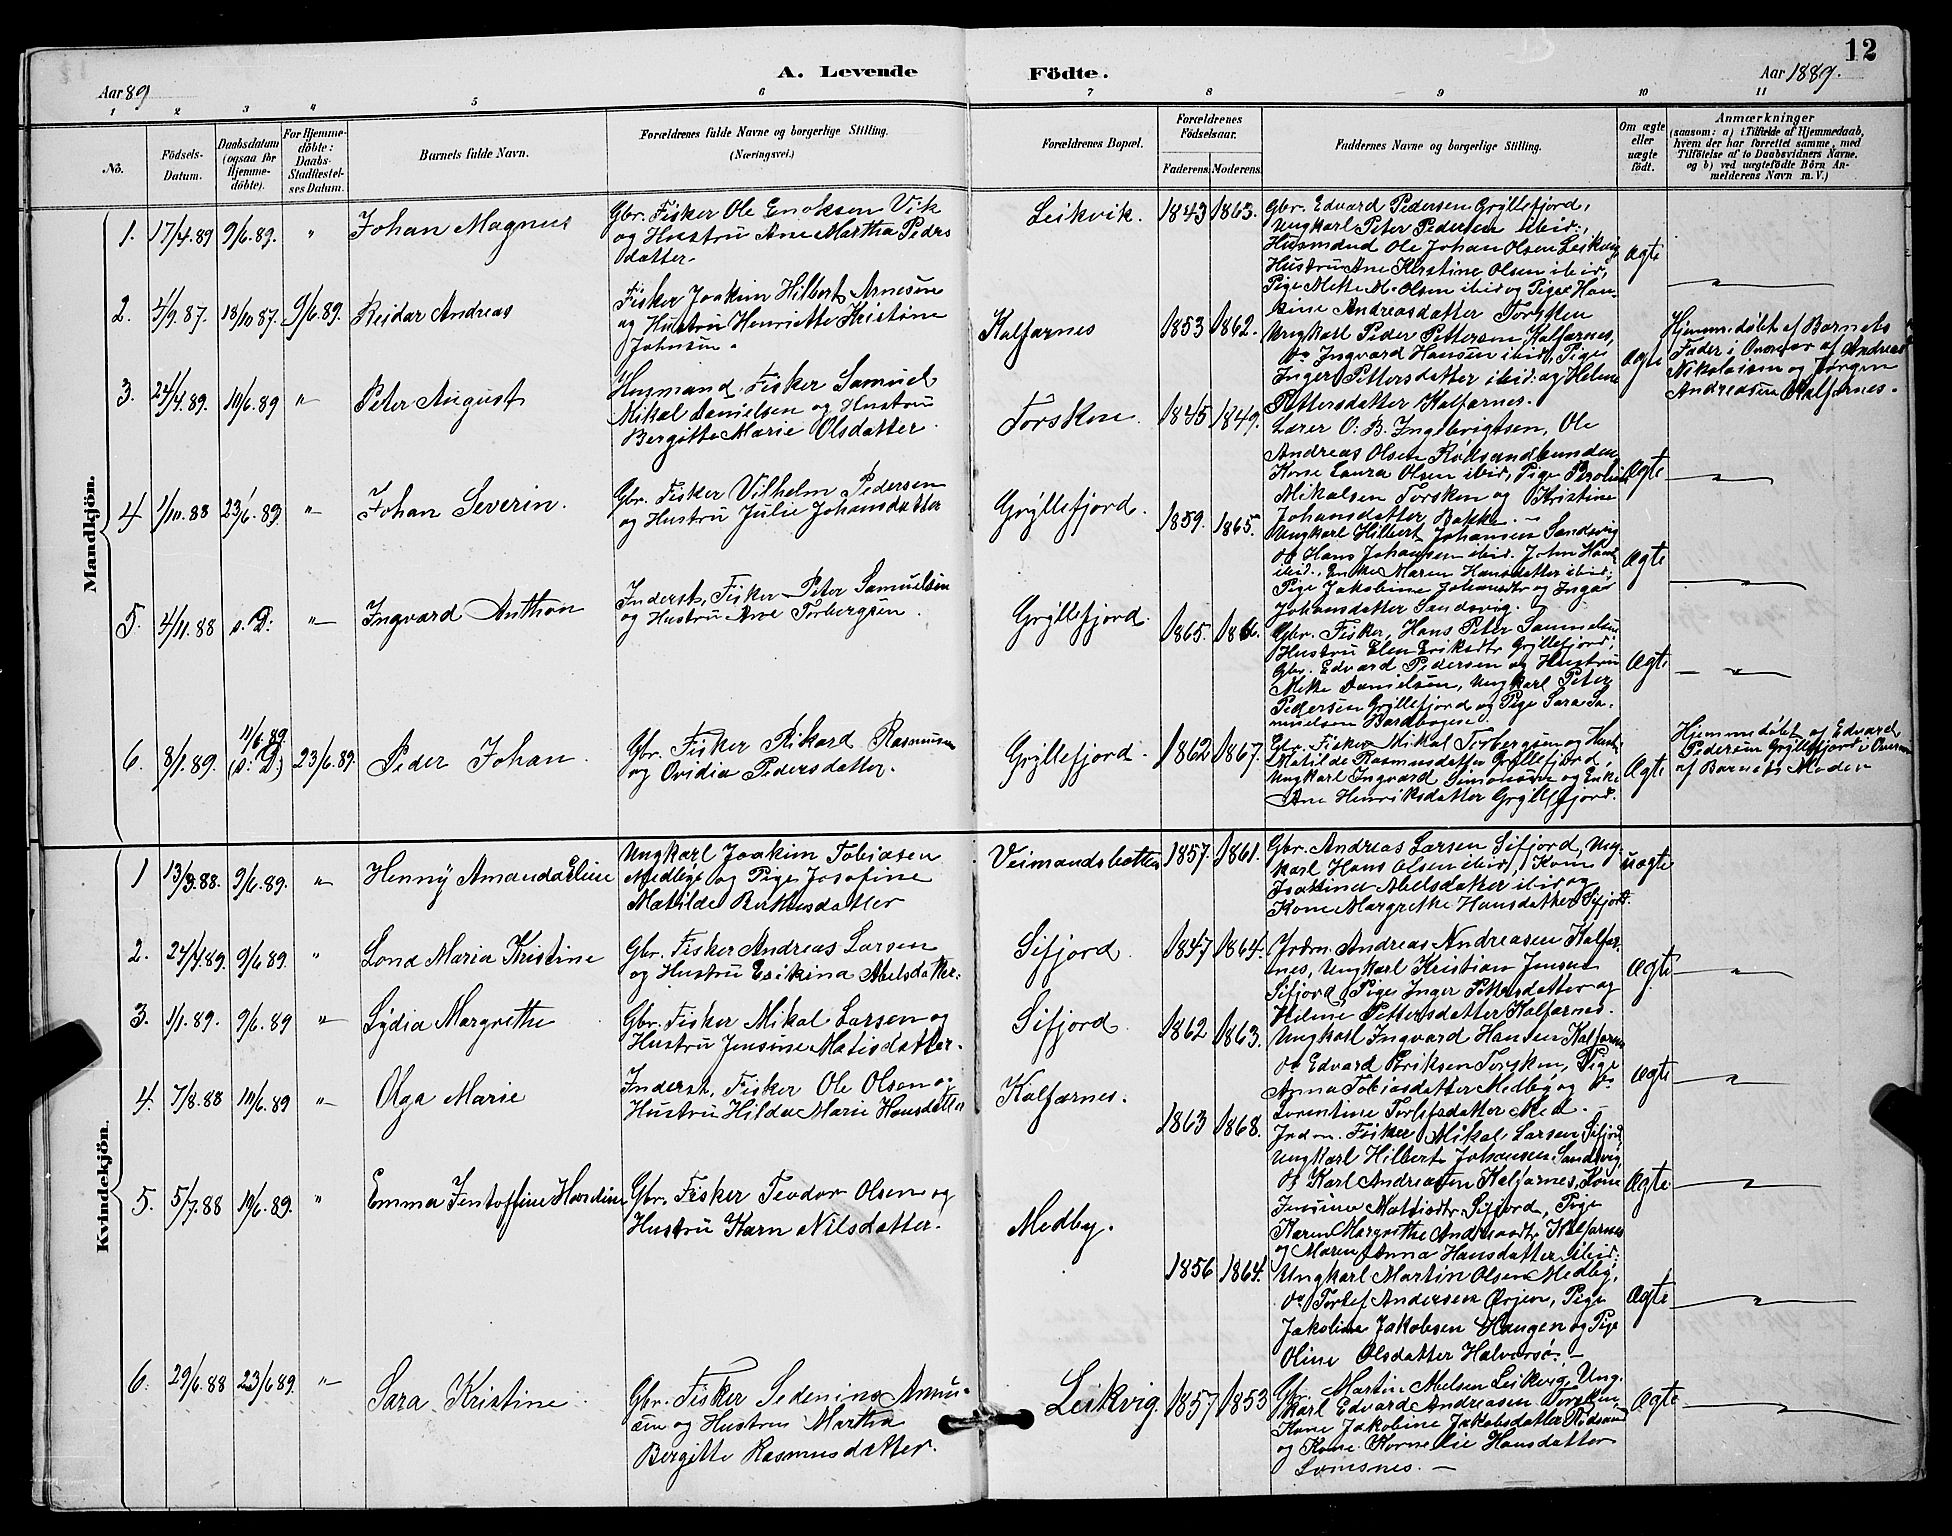 12
A. Levende Födte.
Aar 89
Aar 1889.
1 2 3 4 5 6 7 8 9 10 11
No.
Födsels-Datum.
Daabsdatum (ogsaa for Hjemme-döbte).
For Hjemme-döbte: Daabs-Stadfæstel-ses Datum.
Barnets fulde Navn.
Forældrenes fulde Navne og borgerlige Stilling.
(Næringsvei.)
Forældrenes Bopæl.
Forældrenes Födselsaar.
Faderens. Moderens.
Faddernes Navne og borgerlige Stilling.
Om ægte eller uægte födt.
Anmærkninger
(saasom: a) i Tilfælde af Hjemmedaab,
hvem der har forrettet samme, med
Tilföielse af to Daabsvidners Navne.
og b) ved uægtefödte Börn An-
melderens Navn m. V.)
Mandkjön.
1. 17/4.89 9/6.89. " Johan Magnus
Gbr. Fisker Ole Enoksen Vik
og Hustru Ane Martha Peders
datter.
Leikvik. 1843 1863.
Gbr. Edvard Pedersen Gryllefjord,
Ungkarl Peter Pedersen ibid.,
Husmand Ole Johan Olsen Leikvig
Hustru Ane Kirstine Olsen ibid,
Pige Mette M. Olsen ibid og Pige Han-
sine Andreasdatter Torsken
Ægte
2. 4/9.87. 18/10 87. 9/6.89. Reidar Andreas
Fisker Joakim Hilbert Arnesen
og Hustru Henriette Kristine
Johnsen.
Kalfarnes 1853 1862.
Ungkarl Peder Pettersen Kalfarnes,
do Ingvard Hansen ibid, Pige
Inger Pettersdatter ibid. og Helene
Pettersdatter Kalfarnes.
Ægte
Hjemmedøbt af Barnets
Fader i Overvær af Andreas
Nikolaisen og Jørgen
Andreasen Kalfarnes.
3. 24/4.89. 10/6.89 " Peter August
Husmand, Fisker Samuel
Mikal Danielsen og Hustru
Bergitte Marie Olsdatter.
Torsken. 1845 1849.
Lærer O. B. Ingebrigtsen, Ole
Andreas Olsen Rødsandbunden
Kone Laura Olsen ibid, Pige
Mikalsen Torsken og Kristine
Johansdatter Bakke.
Ægte
4 1/10.88 23/6.89 " Johan Severin.
Gbr. Fisker Vilhelm Pedersen
og Hustru Julie Johansdatter
Gryllefjord. 1859. 1865.
Ungkarl Hilbert Johansen Sandsvig
do Hans Johansen ibid. John
ibid., Enke Maren Hansdatter ibid,
Pige Jakobine Johansdtr og Inga
Johansdatter Sandsvig.
Ægte
5. 4/11.88 s. D: " Ingvard Anthon
Inderst, Fisker Peter Samuelsen
og Hustru Ane Torbergsen.
Gryllefjord. 1865. 1866.
Gbr. Fisker, Hans Peter Samuelsen
Hustru Elen Eriksdtr Gryllefjord,
Gbr. Edvard Pedersen og Hustru
Mette Danielsen, Ungkarl Peter
Pedersen Gryllefjord og Pige Sara Sa-
muelsen
Ægte
6. 8/1.89. 11/6.89 (s. D.) 23/6.89. Peder Johan.
Gbr. Fisker Rikard Rasmusen
og Ovidia Pedersdatter.
Gryllefjord. 1862 1867.
Gbr. Fisker Mikal Torbergsen og Hust.
Matilde Rasmusdatter Gryllefjord,
Ungkarl Ingvard Simonsen og Enke
Ane Henriksdatter Gryllefjord.
Ægte
Hjemmedøbt af Edvard
Pedersen Gryllefjord i Overvær
af Barnets Moder
Kvindekjön.
1 13/3.88. 9/6.89. " Henny Amanda Eline
Ungkarl Joakim Tobiasen
Medbye og Pige Josefine
Matilde
Veimandsbotten 1857. 1861.
Gbr. Andreas Larsen Sifjord, Ung-
karl Hans Olsen ibid, Kone
Abelsdatter ibid og
Kone Margrethe Hansdatter Sifjord.
uægte
2. 24/4.89. 9/6.89. " Lona Maria Kristine
Gbr. Fisker Andreas Larsen
og Hustru Esikina Abelsdatter.
Sifjord 1847 1864.
Inderst. Andreas Andreasen Kalfar-
nes, Ungkarl Kristian Jensen
Sifjord, Pige Inger Pettersdatter og
Helene Pettersdatter Kalfarnes.
Ægte
3. 1/1.89. 9/6.89 " Lydia Margrethe
Gbr. Fisker Mikal Larsen og
Hustru Jensine Matisdatter.
Sifjord. 1862 1863.
Ungkarl Ingvard Hansen Kalfarnes
do Edvard Eriksen Torsken, Pige
Anna Tobiasdatter Medby og do
Lorentine Torlefsdatter Med.
Ægte
4. 7/8.88 10/6.89 " Olga Marie
Inderst, Fisker Ole Olsen og
Hustru Hilda Marie Hansdatter
Kalfarnes. 1863 1868.
Indm. Fisker Mikal Larsen Sifjord,
Ungkarl Hilbert Johansen Sandsvig,
do Karl Andreasen Kalfarnes, Kone
Jensine Matisdtr Sifjord, Pige
Karen Margrethe Andreasdtr Kalfarnes
og Maren Anna Hansdatter ibid.
Ægte
5. 5/7.88 10/6.89. " Emma Jentoffine Hardine
Gbr. Fisker Teodor Olsen og
Hustru Karn Nilsdatter.
Medby. 1856 1864.
Ungkarl Martin Olsen Medby,
do Torlef Andersen Ørjen, Pige
Jakobine Jakobsen Haugen og Pige
Oline Olsdatter Halversø.
Ægte
6. 29/6.88 23/6 89. " Sara Kristine
Gbr. Fisker Sedenius Asmu-
sen og Hustru Martha
Bergitte Rasmusdatter.
Leikvig. 1857 1853
Gbr. Martin Abelsen Leikvig, Ung-
karl Edvard Andreasen Torsken,
Kone Jakobine Jakobsdatter Rødsand
og Kone Kornelie Hansdatter
Lomsnes.
Ægte